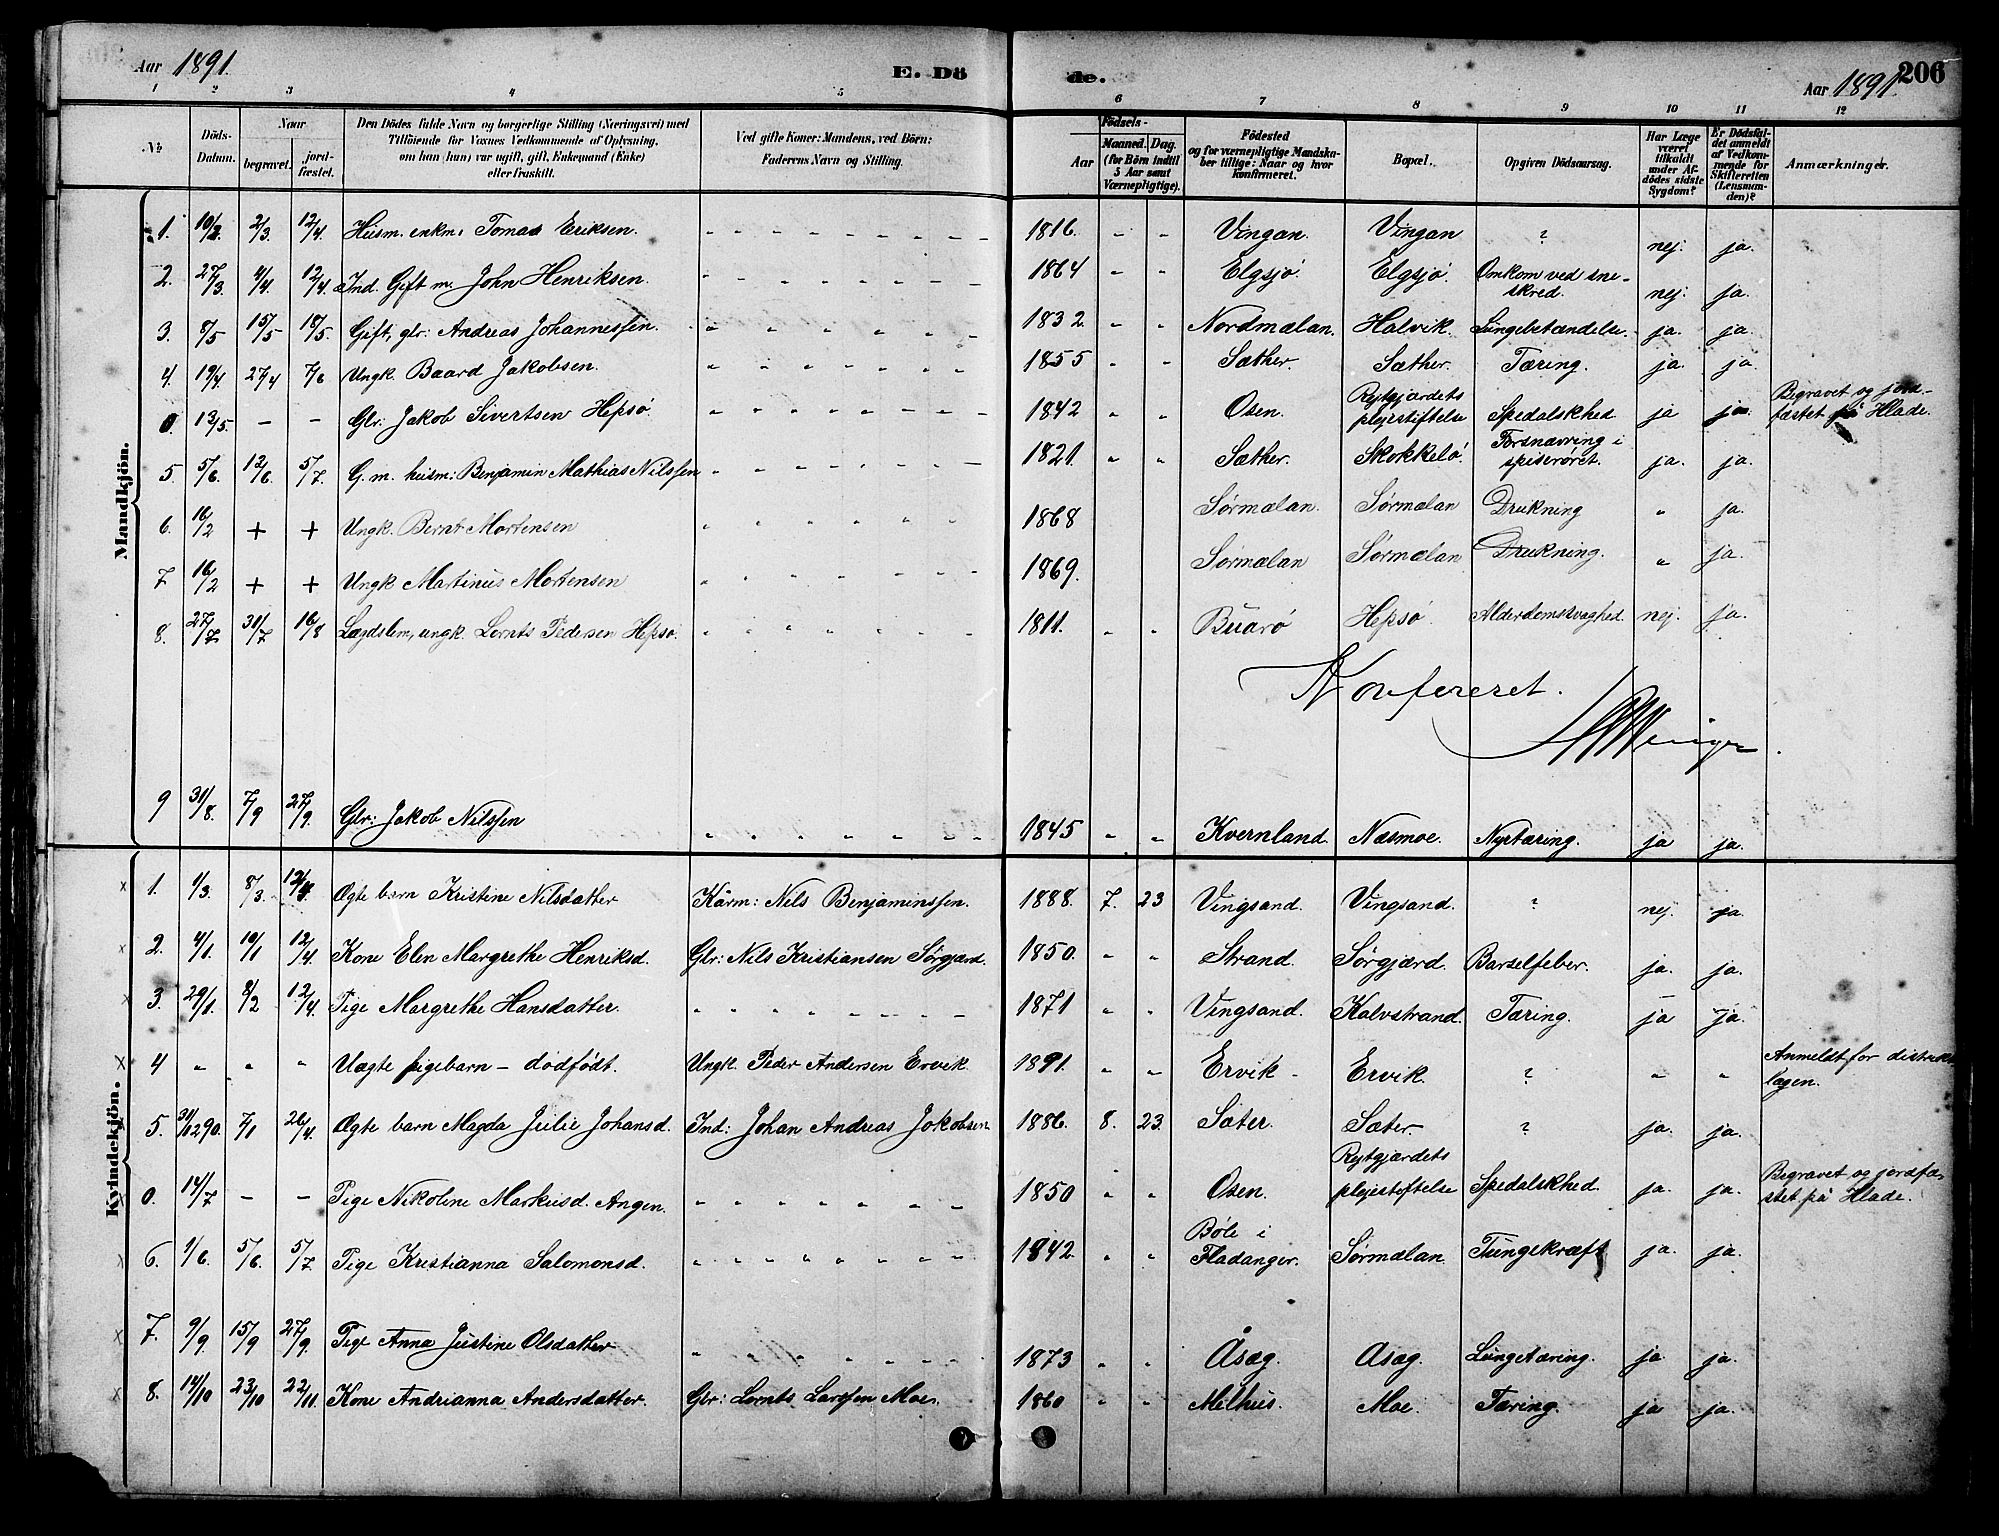 Aar 1891. E. Döde. Aar 1891. 206
1 2 3 4 5 6 7 8 9 10 11 12
№
Döds-Datum.
Naar
begravet.
jordfæstet.
Den Dödes fulde Navn og borgerlige Stilling (Næringsvei) med
Tilföiende for Voxnes Vedkommende af Oplysning,
om han (hun) var ugift, gift, Enkemand (Enke)
eller fraskilt.
Ved gifte Koner: Mandens, ved Börn:
Faderens Navn og Stilling.
Födsels-
Aar
Maaned. Dag.
(for Börn indtil
5 Aar samt
Værnepligtige).
Födested
og for værnepligtige Mandskaber tillige: Naar og hvor
konfirmeret.
Bopæl.
Opgiven Dödsaarsag.
Har Læge
været
tilkaldt
under Afdödes sidste
Sygdom?
Er Dödsfaldet anmeldt
af Vedkommende for
Skifteretten
(Lensmanden)?
Anmærkninger.
Mandkjön.
1. 10/2 2/3 12/4 Husm. enkm. Tomas Eriksen. 1816. Vingan. Vingan ? nej. ja.
2. 27/3 4/4 12/4 Ind. Gift m. John Henriksen. 1864 Elgsjö. Elgsjö. Omkom ved sneskred. nej. ja.
3. 8/5 15/5 18/5 Gift, glr: Andreas Johannessen. 1832 Nordmælan. Halvik. Lungebetændelse ja. ja.
4. 19/4 27/4 7/6 Ungk. Baard Jakobsen. 1855 Sæther. Sæther. Tæring. ja. ja.
0. 13/5 – – Glr: Jakob Sivertsen Hepsö. 1842 Osen. Rejtgjærdets plejestiftelse Spedalskhed ja ja. Begravet og jordfæstet på Hlade.
5 5/6 12/6 5/7 G. m. husm: Benjamin Mathias Nilssen 1821. Sæther. Skokkelö. Forsnævring i spiserøret. ja. ja.
6. 16/2 + + Ungk. Bernt Mortensen 1868 Sørmælan. Sørmælan Drukning " ja.
7. 16/2 + + Ungk Martinus Mortensen 1869. Sørmælan Sørmælan Drukning. " ja.
8. 27/7 31/7 16/8 Lægdslem, ungk Lornts Pedersen Hepsø. 1811. Buarö Hepsø. Alderdomssvaghed. nej. ja.
Konfereret.
9 31/8 7/9 27/9. Glr: Jakob Nilssen 1845 Kvernland. Næsmoe. Nyrtæring. ja ja.
Kvindekjön.
1. 1/3 8/3 12/4 Ægte barn Kristine Nilsdatter Kårm: Nils Benjaminssen. 1888. 7. 23 Vingsand. Vingsand. ? nej. ja
2. 4/1 10/1 12/4 Kone Elen Margrethe Henriksd. Glr: Nils Kristiansen Sørgjærd. 1850. Strand. Sørgjærd. Barselfeber. ja. ja.
3. 29/1 8/2 12/4 Pige Margrethe Hansdatter. 1871 Vingsand. Kalvstrand. Tæring. ja ja.
4 " " " Uægte pigebarn – dødfødt. Ungk. Peder Andersen Ervik. 1891. Ervik Ervik. ? " " Anmeldt for distriktslægen.
5. 31/12 90. 7/1 26/4 Ægte barn Magda Julie Johansd. Ind: Johan Andreas Jakobsen 1886. 8. 23. Sæter. Sæter. ? ja. ja.
0. 14/7 – – Pige Nikoline Markusd. Angen. 1850 Osen. Rejtgjærdets plejestiftelse Spedalskhed. ja. ja. Begravet og jordfæstet på Hlade.
6. 1/6 5/6 5/7 Pige Kristianna Salomonsd. 1842. Bøle i Fladanger. Sørmælan. Tungekræft ja. ja.
7. 9/9 15/9 27/9 Pige Anna Justine Olsdatter 1873 Åsæg. Åsæg. Lungetæring. ja ja.
8. 14/10 23/10 22/11 Kone Andrianna Andersdatter. Glr: Lornts Larssen Moe. 1860 Melhus. Moe. Tæring. ja ja.